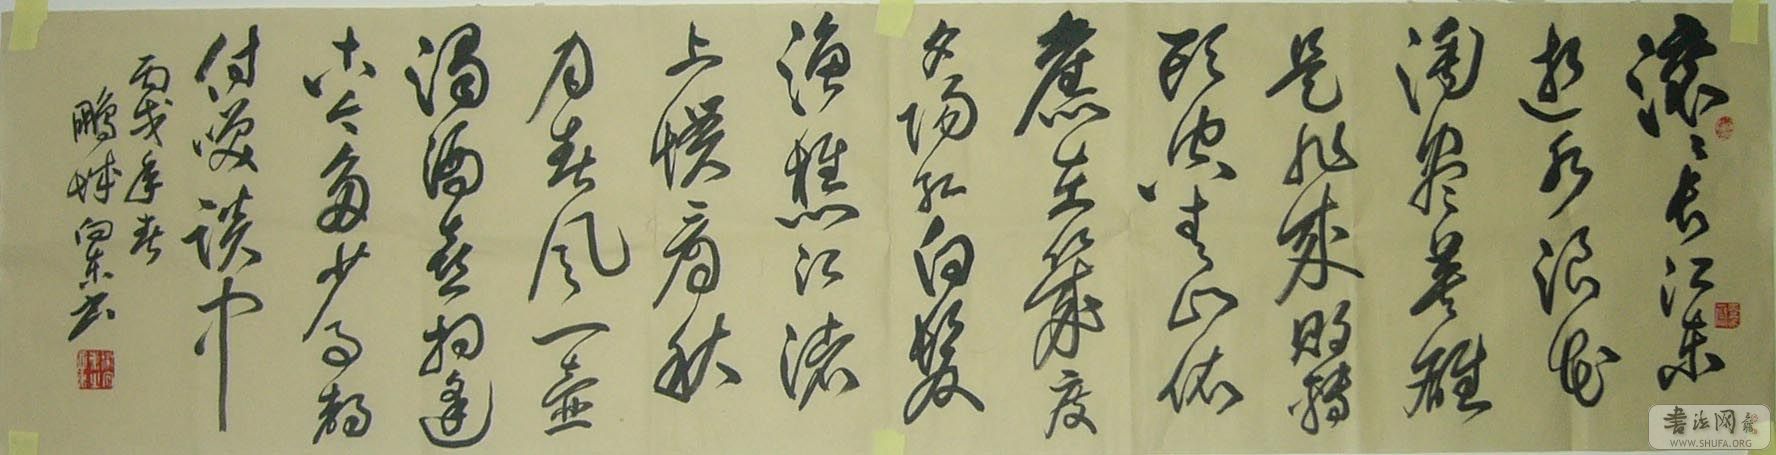 滚〻长江东
逝水浪花
淘尽英雄
是非成败转
头空青山依
舊在幾度
夕阳红白髮
渔樵江渚
上惯看秋
月春风一壶
浊酒喜相逢
古今多少事都
付笑谈中
丙戌年春
鹏城向东书
书法网
WWW.SHUFA.ORG